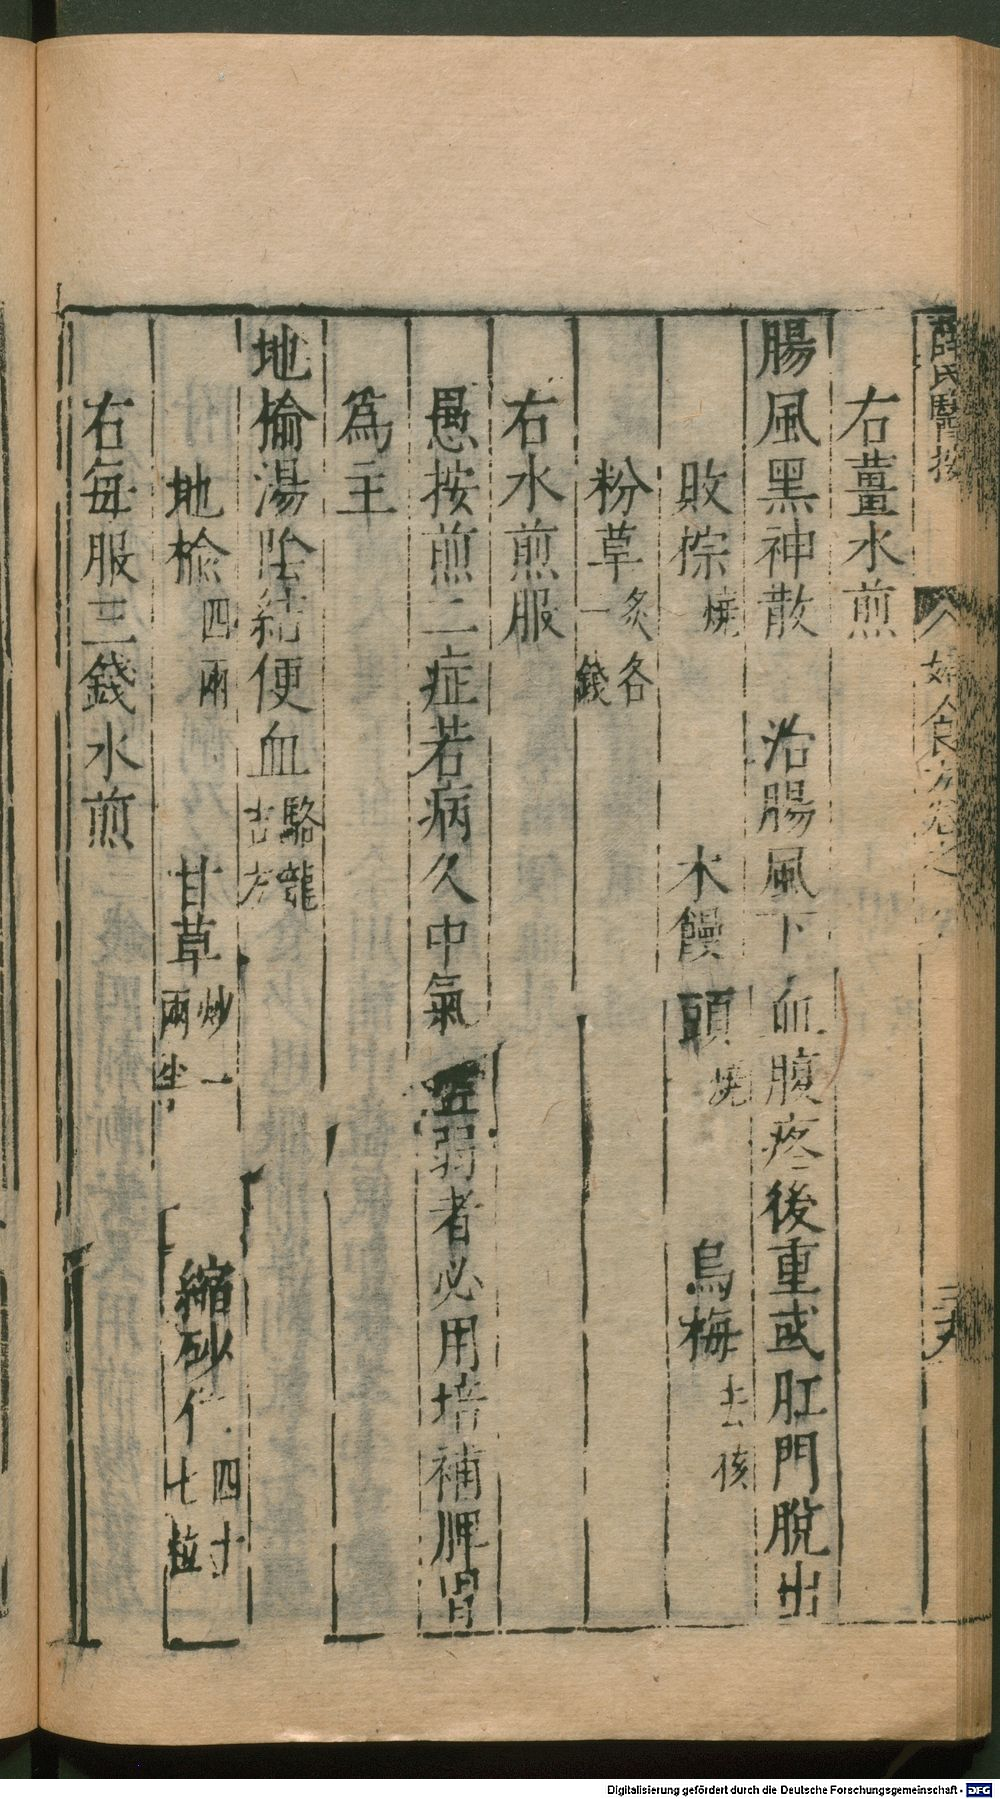 薛氏醫按 婦人良方卷之
右薑水煎
腸風黑神散 治腸風下血腹疼後重或肛門脫出
敗椶燒 木饅頭燒 烏梅去核
粉草炙各一錢
右水煎服
愚按煎二症若病久中氣虛弱者必用培補脾胃
爲主
地榆湯陰結便血駱龍吉方
地榆四兩 甘草炒一兩半 縮砂仁四十七粒
右每服三錢水煎
Digitalisierung gefördert durch die Deutsche Forschungsgemeinschaft - DFG